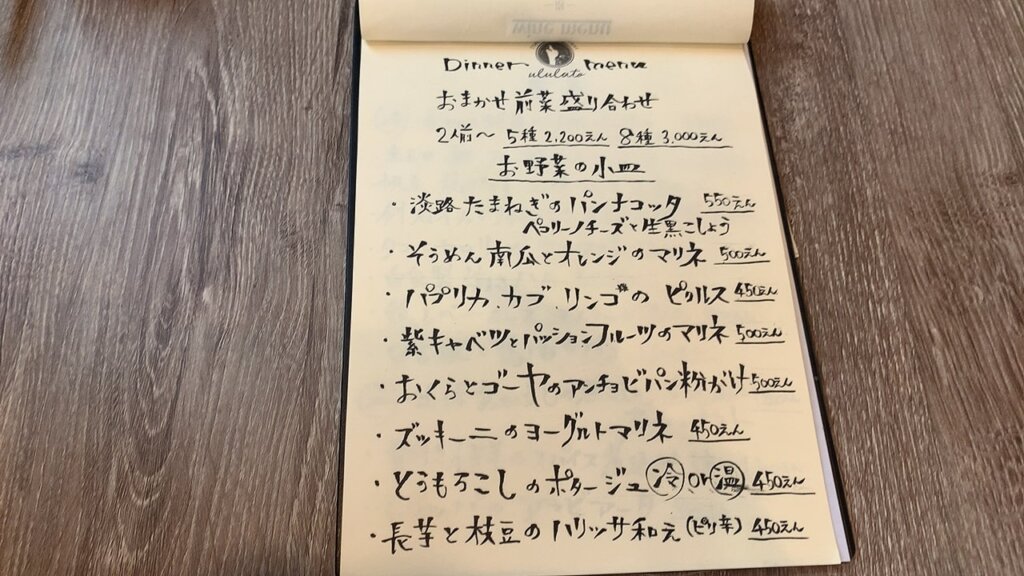 wine menu
Dinner menu
ululato
おまかせ前菜盛り合わせ
2人前〜 5種 2,200えん 8種 3,000えん
お野菜の小皿
・淡路たまねぎのパンナコッタ 550えん
ペコリーノチーズと生黒こしょう
・そうめん南瓜とオレンジのマリネ 500えん
・パプリカ、カブ、リンゴのピクルス 450えん
・紫キャベツとパッションフルーツのマリネ 500えん
・おくらとゴーヤのアンチョビパン粉がけ 500えん
・ズッキーニのヨーグルトマリネ 450えん
・とうもろこしのポタージュ 冷 or 温 450えん
・長芋と枝豆のハリッサ和え(ピリ辛) 450えん